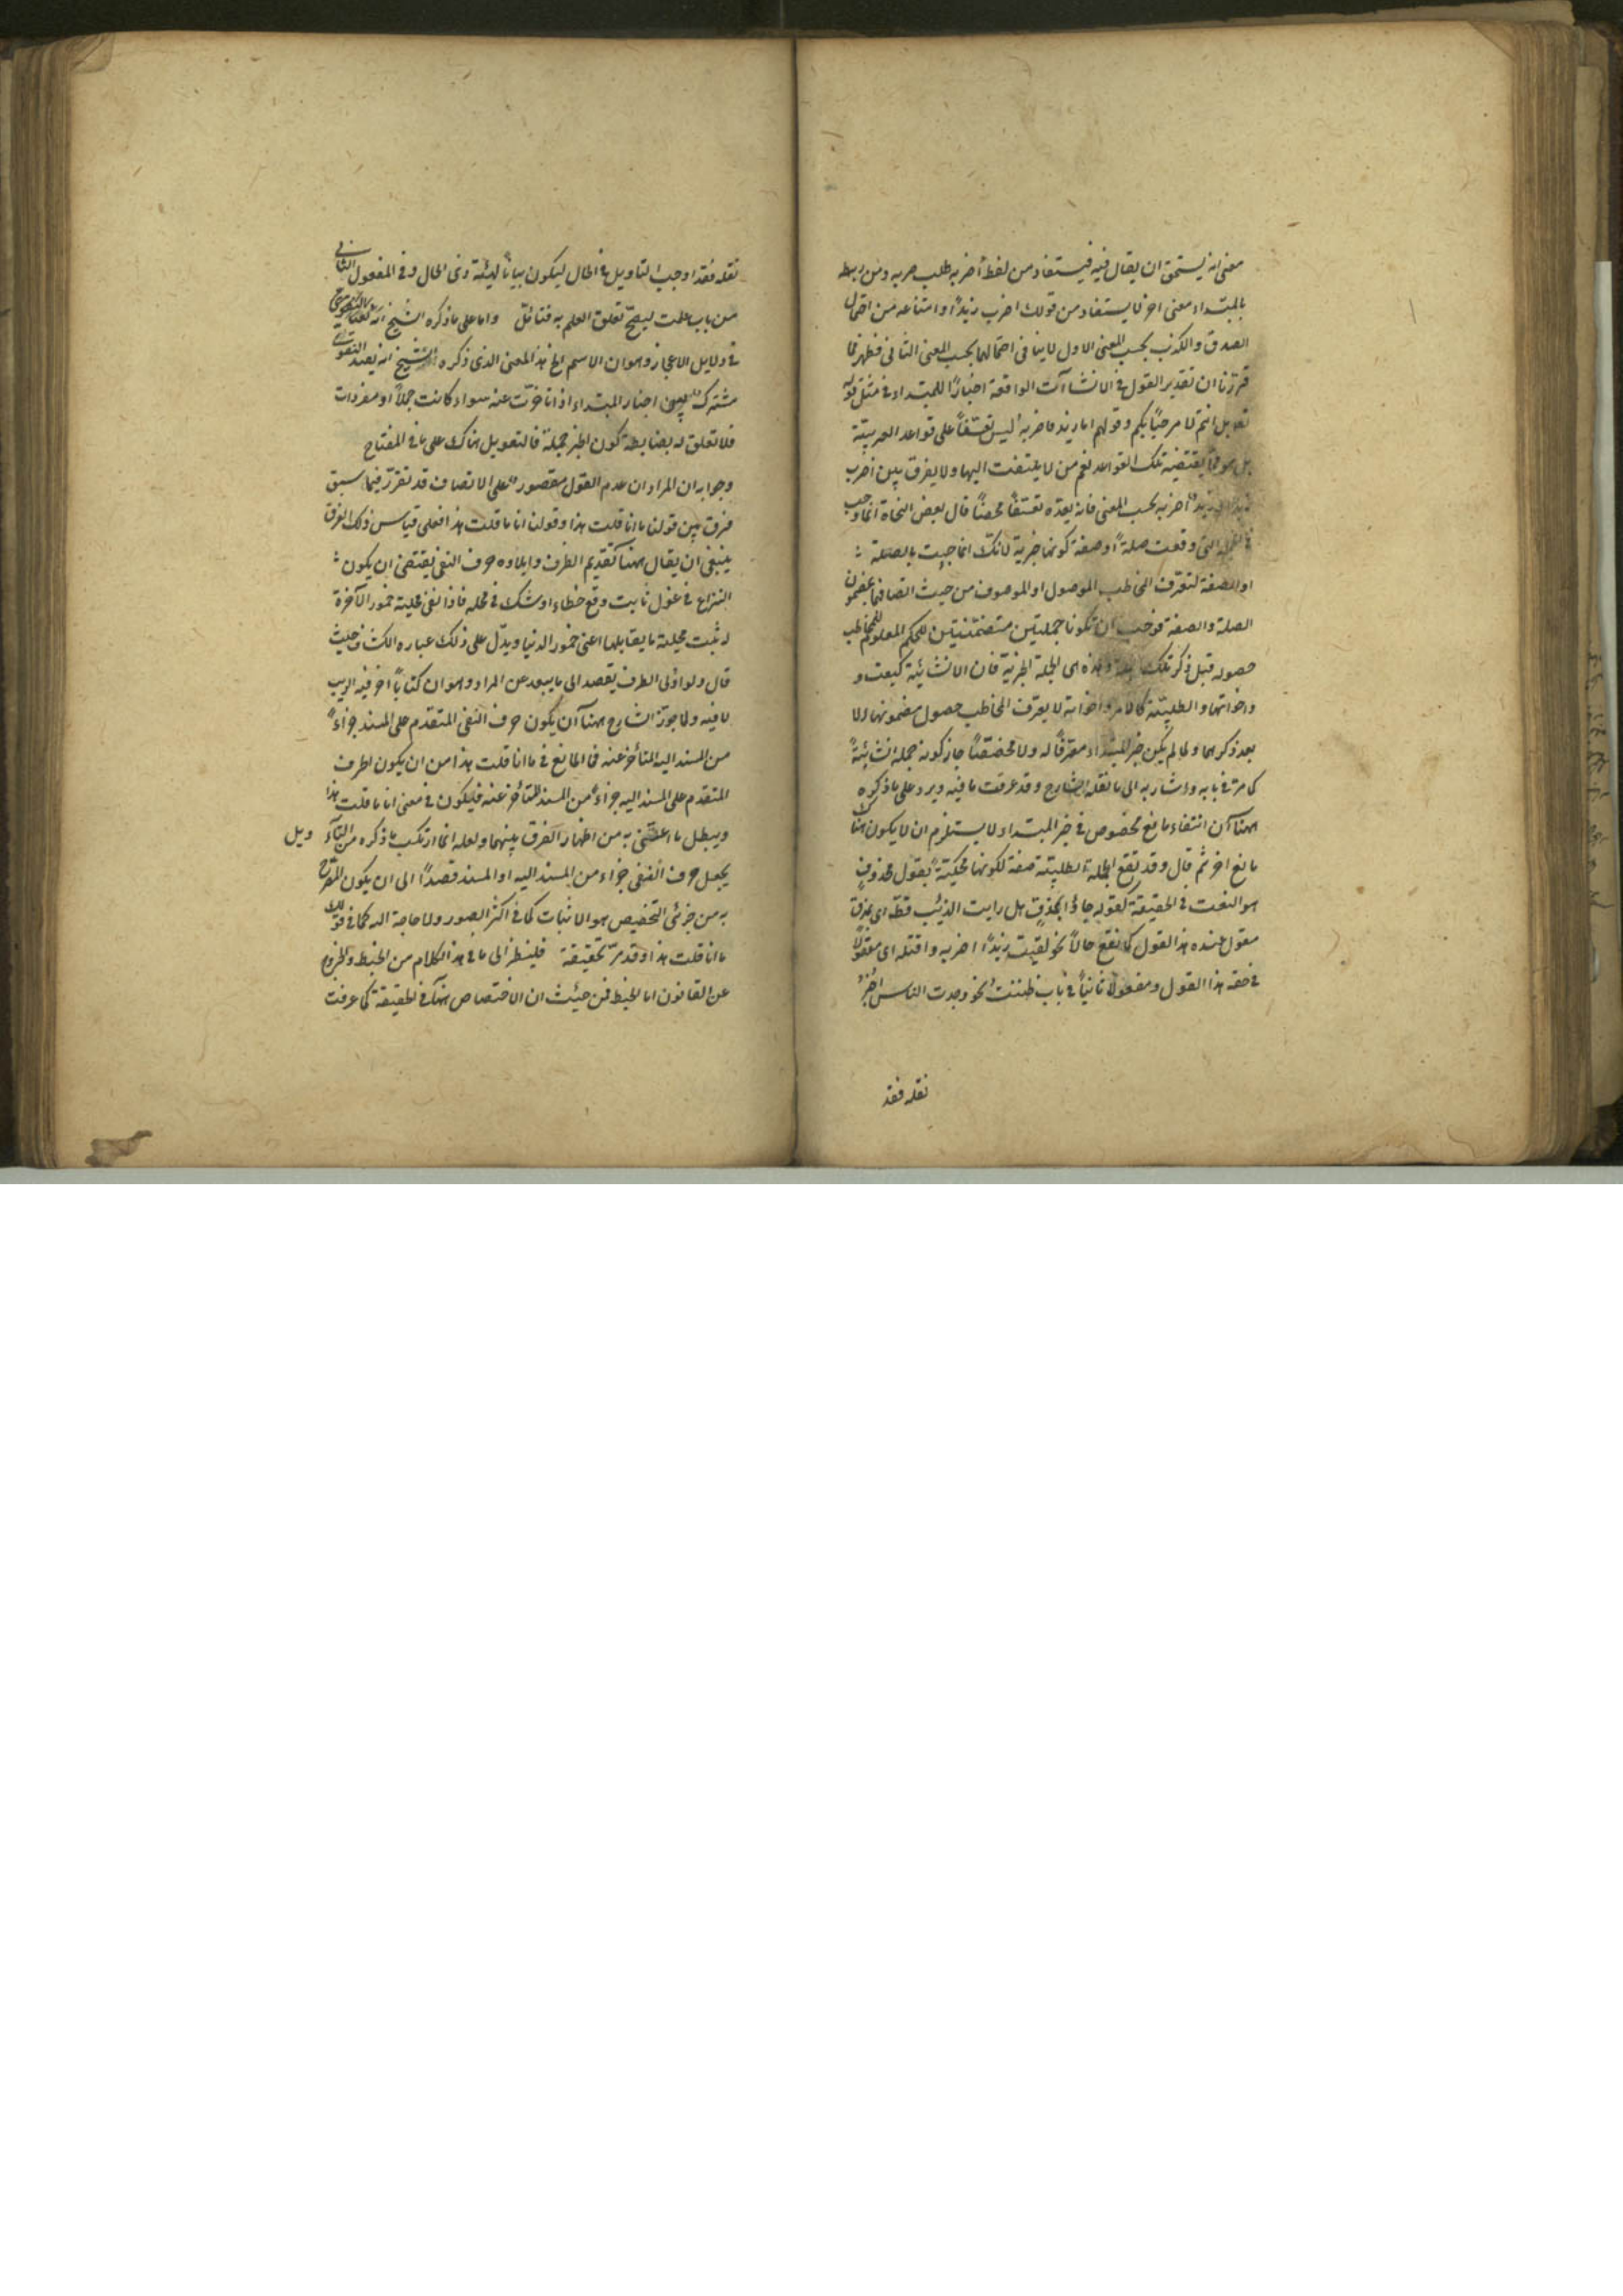 معنى انه يستحق ان يقال فيه فيستفاد من لفظ أضربه طلب ضربه ومن ربطه
بالمبتداء معنى اخر لا يستفاد من قولك اضرب زيداً وامتناعه من احتمال
الصدق والكذب بحسب المعنى الاول لا ينافى احتمالهما بحسب المعنى الثانى فظهر مما
قررنا ان تقدير القول فى الانشاآت الواقعة اخباراً للمبتداء فى مثل قوله
تعالى بل انتم لا مرحبًا بكم وقولهم اما زيد فاضربه ليس تعسّفاً على قواعد العربيّة
بل هو ممّا يقتضيه تلك القواعد نعم من لا يلتفت اليها ولا يفرق بين اضرب
زيداً وزيدٌ أضربه بحسب المعنى فانه يعدّه تعسّفاً محضاً قال بعض النحاة انما وجب
فى الجملة التى وقعت صلةً أو صفة كونها خبرية لانك انما جئت بالصلة
او الصفة لتعرّف المخاطب الموصول او الموصوف من حيث اتصافهما بمضمون
الصلة والصفة فوجب ان تكونا جملتين متضمّنتين للحكم المعلوم للمخاطب
حصوله قبل ذكر تلك الجملة وهذه هى الجملة الخبرية فان الانشائيّة كبعت و
واخواتهما والطلبيّة كالامر واخواته لا يعرف المخاطب حصول مضمونها الا
بعد ذكرهما ولما لم يكن خبر المبتداء معرّفاً له ولا مخصّصًا جاز كونه جملة انشائيّةً
كما مرّ فى بابه واشار به الى ما نقله الشارح وقد عرفت ما فيه ويرد على ما ذكره
ههنا أن انتفاء مانع مخصوص فى خبر المبتداء لا يستلزم ان لا يكون هناك
مانع اخر ثم قال وقد تقع الجملة الطلبيّة صفة لكونها محكيّةً بقول محذوفٍ
هو النعت فى الحقيقة كقوله جاؤا بمذقٍ هل رايت الذئب قطّ اى بمذق
مقول عنده هذا القول كما تقع حالاً نحو لقيت زيداً اضربه واقتله اى مقولًا
فى حقه هذا القول ومفعولاً ثانياً فى باب ظننت نحو وجدت الناس اخبر
نقله فقد
نقله فقد اوجب التاويل فى الحال ليكون بياناً لهيئة ذى الحال وفى المفعول الثانى
من باب علمت ليصحّ تعلق العلم به فتأمّل واما على ما ذكره الشيخ
فى دلايل الاعجاز وهو ان الاسم الخ هذا المعنى الذى ذكره الشيخ انه يفيد التقوى
مشترك بين اخبار المبتداء اذا تأخرت عنه سواء كانت جملاً أو مفردات
فلا تعلق له بضابطة كون الخبر جملة فالتعويل هناك على ما فى المفتاح
وجوابه ان المراد ان عدم الغول مقصور على الاتصاف قد تقرّر فيما سبق
فرق بين قولنا ما انا قلت هذا وقولنا انا ما قلت هذا فعلى قياس ذلك الفرق
ينبغى ان يقال ههنا تقديم الظرف وايلاؤه حرف النفى يقتضى ان يكون
النزاع فى غول ثابت وقع خطاء او شك فى محله فاذا نفى محليّة خمور الآخرة
له ثبت محلية ما يقابلها اعنى خمور الدنيا ويدلّ على ذلك عباره الكشاف حيث
قال ولو اولى الظرف يقصد الى ما يبعد عن المراد وهو ان كتاباً اخر فيه الريب
لا فيه ولما جوّز الشارح ههنا أن يكون حرف النفى المتقدم على المسند جزءاً
من المسند اليه المتأخر عنه فما المانع فى ما انا قلت هذا من ان يكون الحرف
المتقدم على المسند اليه جزءاً من المسند المتأخر عنه فيكون فى معنى انا ما قلت هذا
ويبطل ما اعتنى به من اظهار الفرق بينهما ولعله انما ارتكب ما ذكره من التآويل
يجعل حرف النفى جزء من المسند اليه او المسند قصداً الى ان يكون المصرّح
به من جزئى التخصيص هو الاثبات كما فى اكثر الصور ولا حاجة اليه كما فى قولك
ما انا قلت هذا وقد مرّ تحقيقة فلينظر الى ما فى هذا الكلام من الخبط والخروج
عن القانون اما الخبط فمن حيث ان الاختصاص هناك فى الحقيقة كما عرفت